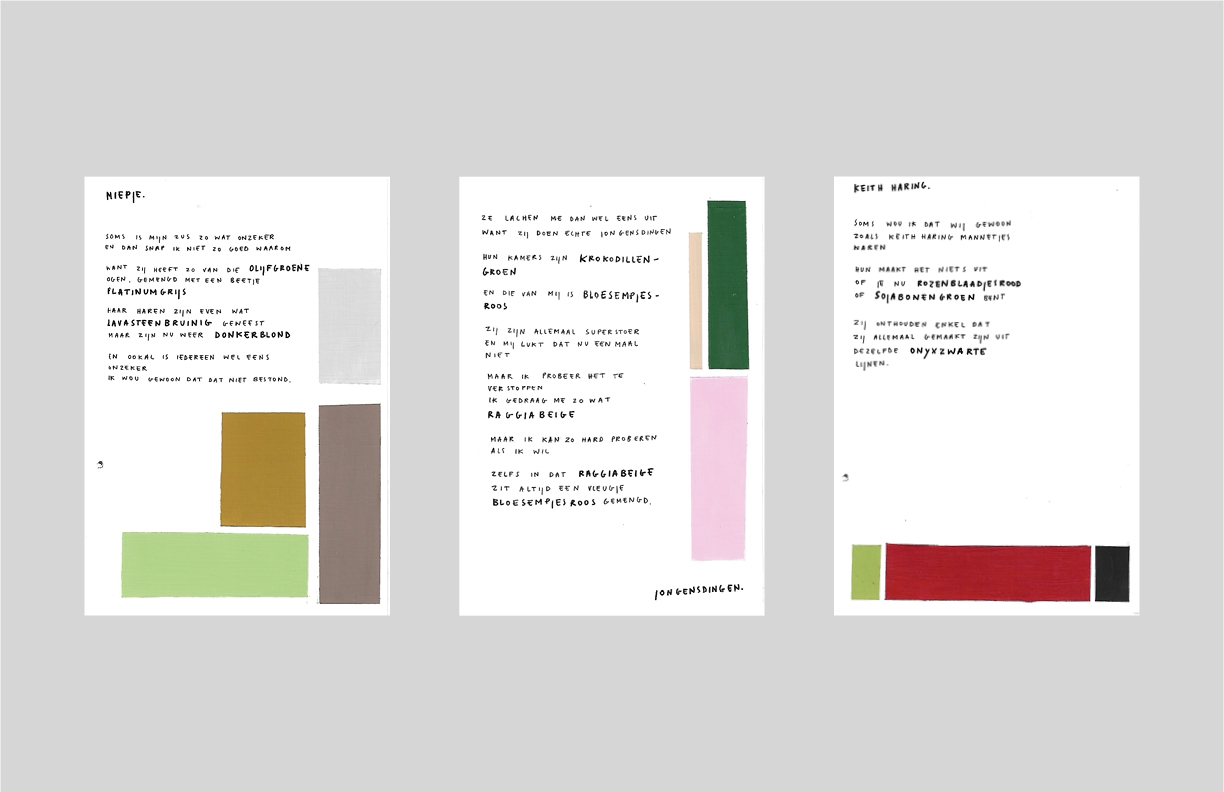 MIEPJE.
SOMS IS MIJN ZUS ZO WAT ONZEKER
EN DAN SNAP IK NIET ZO GOED WAAROM
WANT ZIJ HEEFT ZO VAN DIE OLIJFGROENE
OGEN, GEMENGD MET EEN BEETJE
PLATINUMGRIJS
HAAR HAREN ZIJN EVEN WAT
LAVASTEENBRUINIG GEWEEST
MAAR ZIJN NU WEER DONKERBLOND
EN OOKAL IS IEDEREEN WEL EENS
ONZEKER
IK WOU GEWOON DAT DAT NIET BESTOND.
ZE LACHEN ME DAN WEL EENS UIT
WANT ZIJ DOEN ECHTE JONGENSDINGEN
HUN KAMERS ZIJN KROKODILLEN-
GROEN
EN DIE VAN MIJ IS BLOESEMPJES-
ROOS
ZIJ ZIJN ALLEMAAL SUPERSTOER
EN MIJ LUKT DAT NU EENMAAL
NIET
MAAR IK PROBEER HET TE
VERSTOPPEN
IK GEDRAAG ME ZO WAT
RAGGIABEIGE
MAAR IK KAN ZO HARD PROBEREN
ALS IK WIL
ZELFS IN DAT RAGGIABEIGE
ZIT ALTIJD EEN VLEUGJE
BLOESEMPJESROOS GEMENGD.
JONGENSDINGEN.
KEITH HARING.
SOMS WOU IK DAT WIJ GEWOON
ZOALS KEITH HARING MANNETJES
WAREN
HUN MAAKT HET NIETS UIT
OF JE NU ROZENBLAADJESROOD
OF SOJABONENGROEN BENT
ZIJ ONTHOUDEN ENKEL DAT
ZIJ ALLEMAAL GEMAAKT ZIJN UIT
DEZELFDE ONYXZWARTE
LIJNEN.